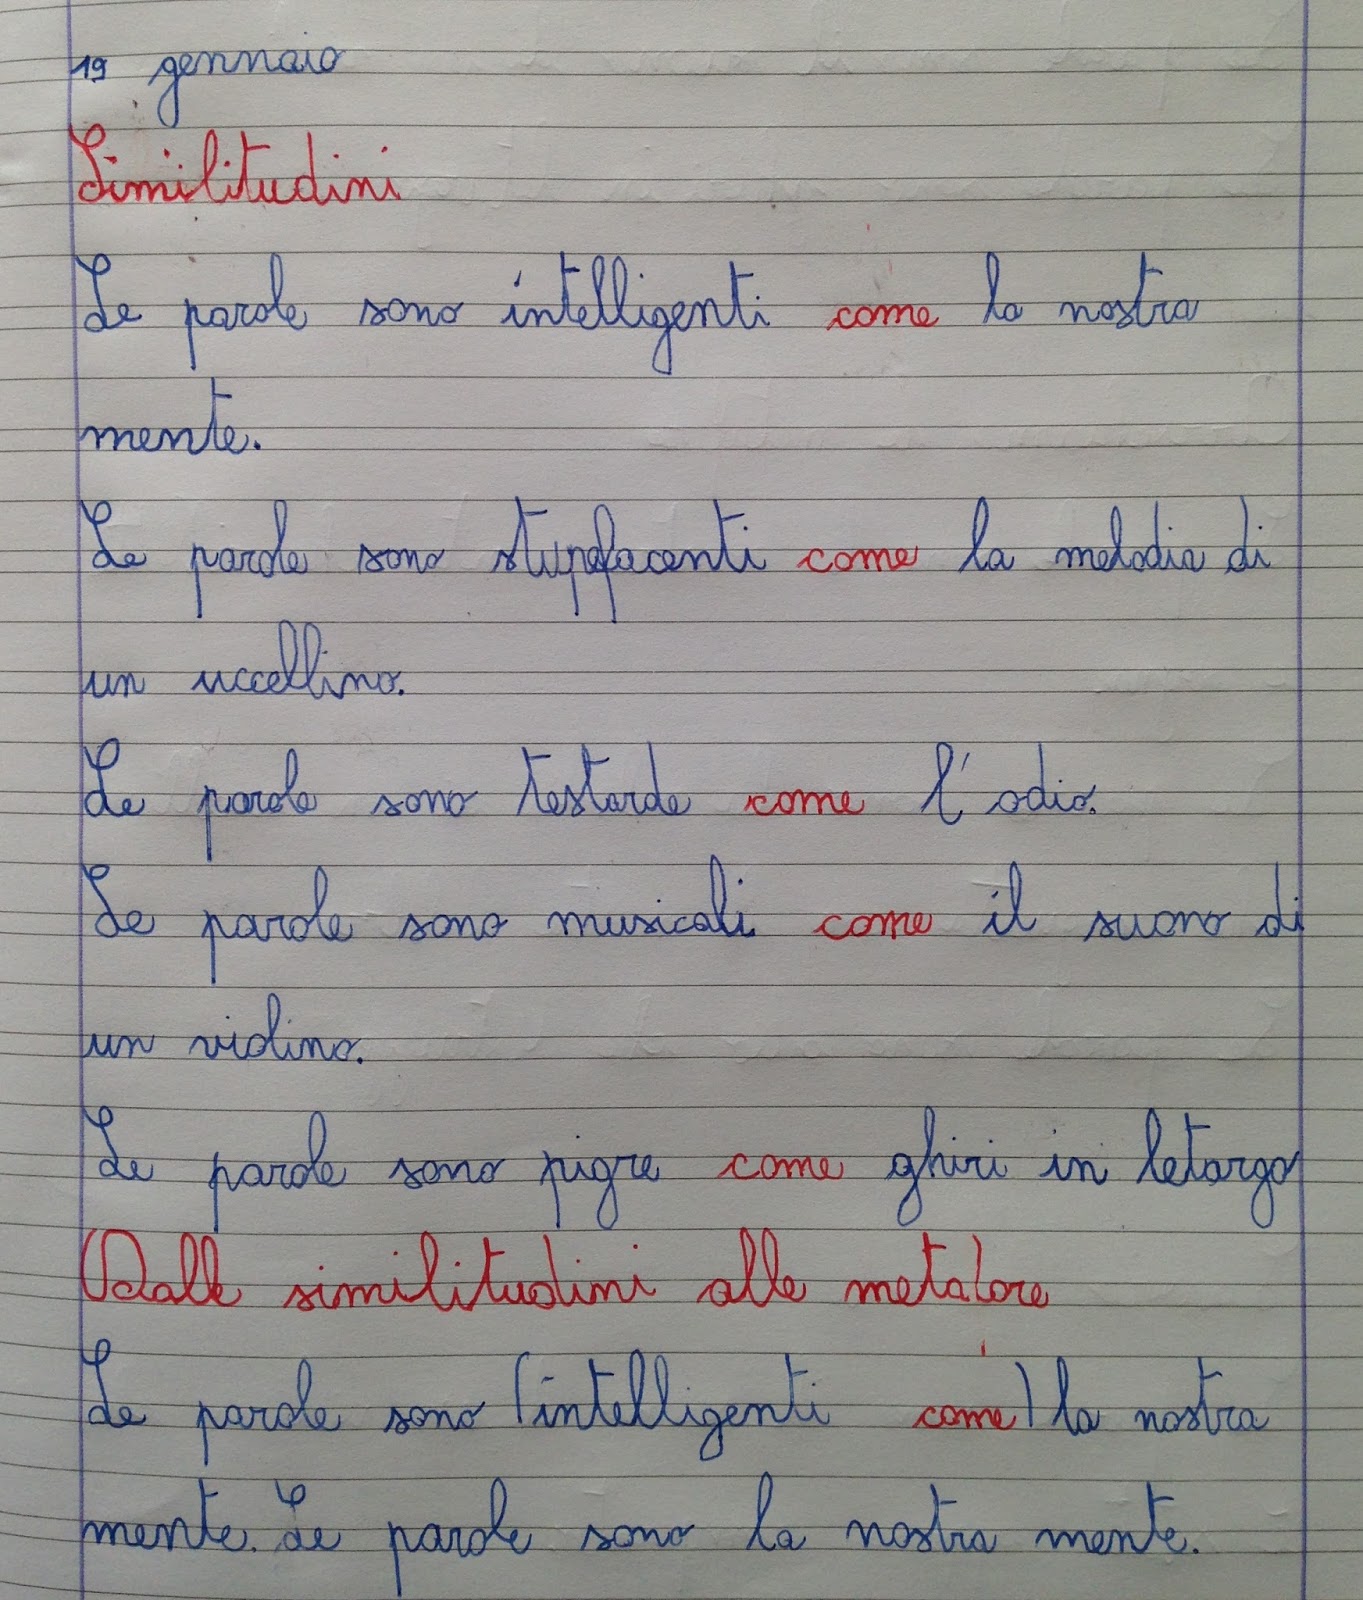 19 gennaio
Similitudini
Le parole sono intelligenti come la nostra
mente.
Le parole sono stupefacenti come la melodia di
un uccellino.
Le parole sono testarde come l'odio.
Le parole sono musicali come il suono di
un violino.
Le parole sono pigre come ghiri in letargo
Dalle similitudini alle metafore
Le parole sono (intelligenti come) la nostra
mente. Le parole sono la nostra mente.